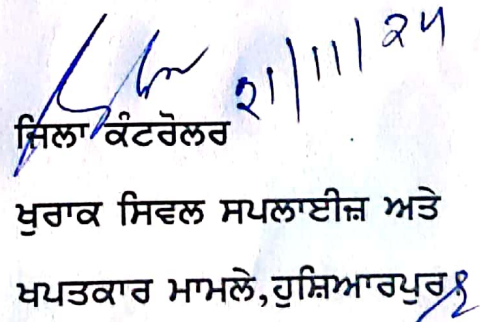 21/11/24
ਜ਼ਿਲਾ ਕੰਟਰੋਲਰ
ਖੁਰਾਕ ਸਿਵਲ ਸਪਲਾਈਜ਼ ਅਤੇ
ਖਪਤਕਾਰ ਮਾਮਲੇ,ਹੁਸ਼ਿਆਰਪੁਰ